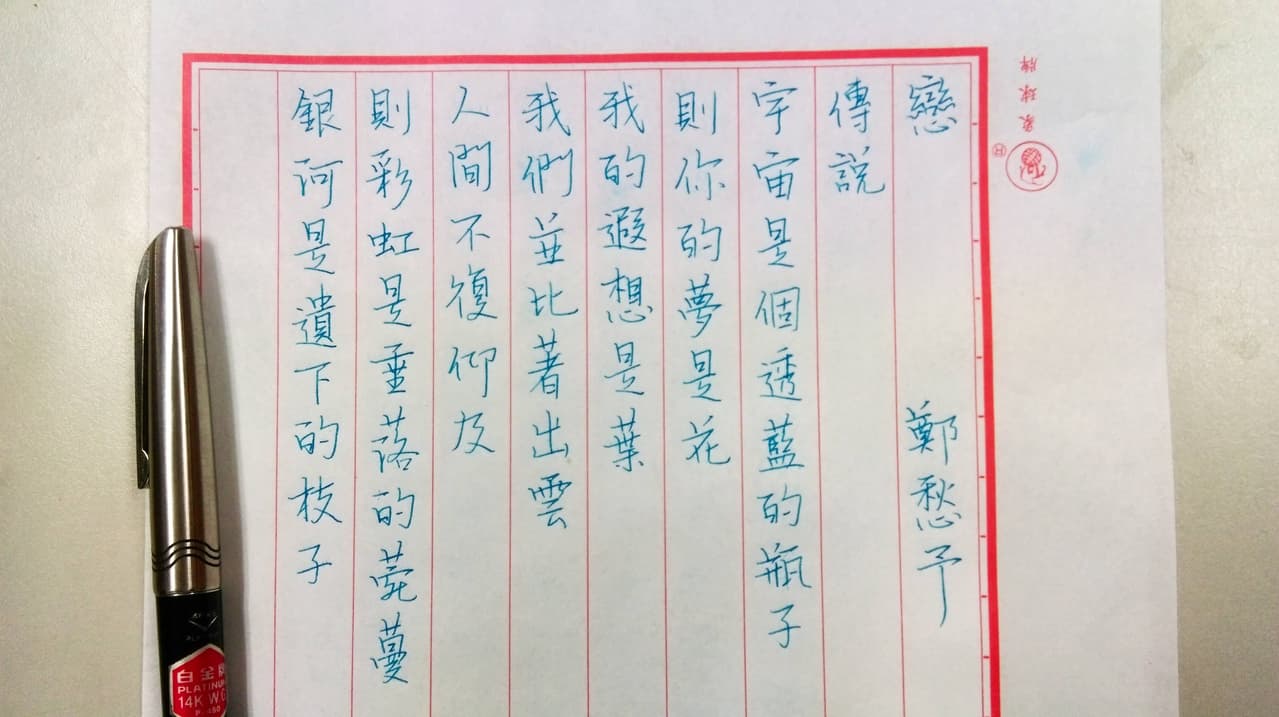 戀 鄭愁予
傳說
宇宙是個透藍的瓶子
則你的夢是花
我的遐想是葉
我們並比著出雲
人間不復仰及
則彩虹是垂落的菀蔓
銀河是遺下的枝子
象球牌
®
白金牌
PLATINUM
14K W.G